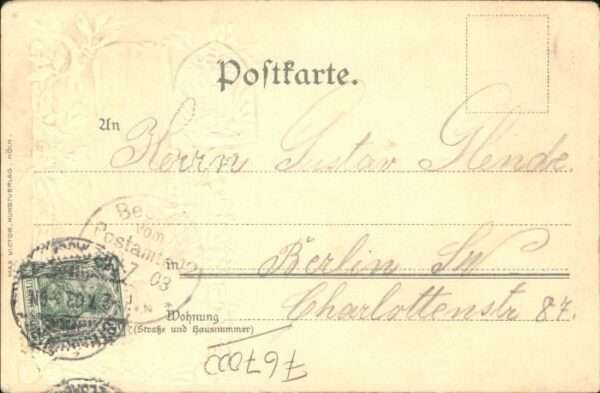 Postkarte.
An
Herrn Gustav Glende.
in Berlin SW
Wohnung
(Straße und Hausnummer)
Charlottenstr 87.
MAX VICTOR, KUNSTVERLAG, KÖLN.
Be
vom
Postamt
7 03
767000